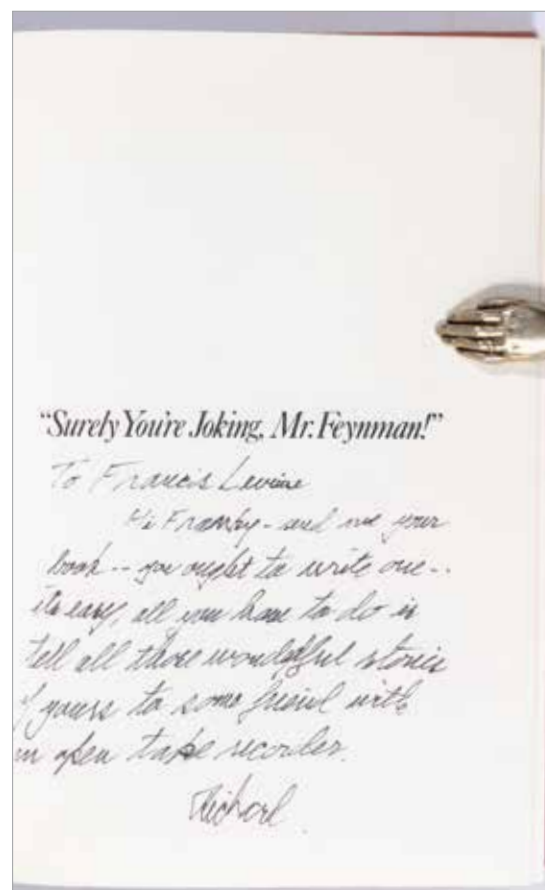 “Surely You're Joking, Mr. Feynman!”
To Francis Levine
Hi Franky - and me your
book -- you ought to write one --
its easy, all you have to do is
tell all those wonderful stories
of yours to some friend with
an open tape recorder.
Richard